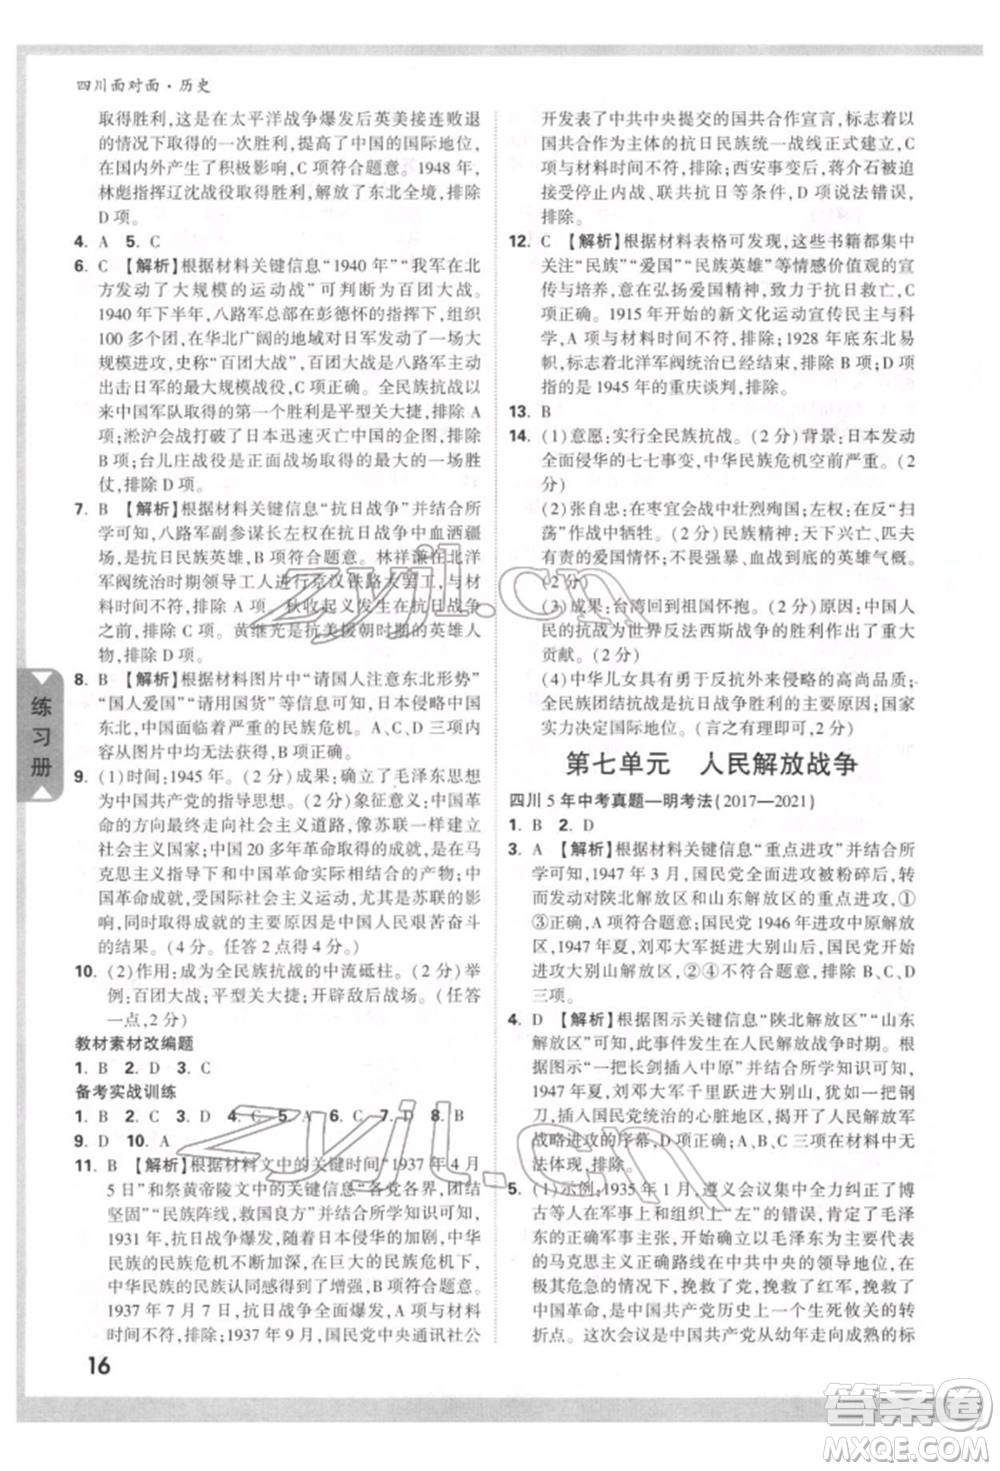 四川面对面·历史
取得胜利，这是在太平洋战争爆发后英美接连败退
的情况下取得的一次胜利，提高了中国的国际地位，
在国内外产生了积极影响，C项符合题意。1948年，
林彪指挥辽沈战役取得胜利，解放了东北全境，排除
D项。
4. A 5. C
6. C 【解析】根据材料关键信息“1940年”“我军在北
方发动了大规模的运动战”可知，这是百团大战。
1940年下半年，八路军总部在彭德怀的指挥下，组织
100多个团，在华北广阔的地域对日军发动了一场大
规模进攻，史称“百团大战”。百团大战是八路军主动
出击日军的最大规模战役，C项正确。全民族抗战以
来中国军队取得的第一个胜利是平型关大捷，排除A
项；淞沪会战打破了日本迅速灭亡中国的企图，排除
B项；台儿庄战役是抗战以来取得的最大的一场胜
仗，排除D项。
7. B 【解析】根据材料关键信息“抗日战争”并结合所
学可知，八路军副参谋长左权在抗日战争中血洒疆
场，是抗日民族英雄，B项符合题意。林祥谦在北洋
军阀统治时期领导工人进行京汉铁路大罢工，与材
料时间不符，排除A项。秋收起义发生在抗日战争
之前，排除C项。黄继光是抗美援朝时期的英雄人
物，排除D项。
8. B 【解析】根据材料图片中“请国人注意东北形势”
“国人爱国”“请用国货”等信息可知，日本侵略中国
东北，中国面临着严重的民族危机。A、C、D三项内
容从图片中无法获得，B项正确。
9. （1）时间：1945年。（2分）成果：确立了毛泽东思想
为中国共产党的指导思想。（2分）原因：中国革命的
最终走向是社会主义道路，像苏联一样，成为社会主
义国家；中国20多年的革命取得的胜利，都是在马
克思主义指导下，结合中国革命的实际，尤其是毛泽
东思想的指导，是国际社会主义运动，尤其是苏联的
成功的主要原因是中国人民、中国共产党艰苦奋斗
的结果。（4分。任答2点得4分）
10. （2）作用：成为全民族抗战的中流砥柱。（2分）举
例：百团大战；平型关大捷；开辟敌后战场。（任答
一点，2分）
教材素材改编题
1. B 2. D 3. C
备考实战训练
1. B 2. C 3. D 4. C 5. C 6. D 7. D 8. B
9. D 10. A
11. B 【解析】根据材料文中的关键时间“1937年4月
5日”和祭黄帝陵文中的关键信息“各党各界，团结
坚固”“民族阵线，救国良方”并结合所学知识可知，
材料反映了随着日本侵华的加剧，中华民族的民族
危机不断加深，在巨大的民族危机下，中华民族
的民族认同感得到了增强，B项符合题意。
1937年7月7日，抗日战争全面爆发，A项与材料时
间不符，排除；1937年9月，国民党中央通讯社公
开发表了中共中央提交的国共合作宣言，标志着以
国共合作为主体的抗日民族统一战线正式建立，C
项与材料时间不符，排除；西安事变中，蒋介石被迫
接受停止内战、联共抗日等条件，D项说法错误，
排除。
12. C 【解析】根据材料表格可发现，这些书籍都集中
关注“民族”“爱国”“民族英雄”等情感价值观的宣
传，旨在弘扬爱国精神，进行抗日救亡，C项符合
题意。1915年开始的新文化运动宣传民主与科
学，A项与材料时间不符，排除；1928年底东北易
帜，标志着北洋军阀统治已经结束，排除B项；D项
指的是1945年的重庆谈判，排除。
13. B
14. （1）意愿：实行全民族抗战。（2分）背景：日本发动
全面侵华的七七事变，中华民族危机空前严重。（2
分）
（2）张自忠：在枣宜会战中壮烈殉国；左权：在反“扫
荡”作战中牺牲。（2分）民族精神：天下兴亡、匹夫
有责的爱国情怀；不畏强暴、血战到底的英雄气概。
（2分）
（3）成果：台湾回到祖国怀抱。（2分）原因：中国人民
的抗战为世界反法西斯战争的胜利作出了重大
贡献。（2分）
（4）中华儿女具有反抗外来侵略的高尚品质；
全民族团结抗战是抗战胜利的重要法宝；国家
实力决定国际地位。（言之有理即可，2分）
第七单元 人民解放战争
四川5年中考真题—明考法（2017—2021）
1. B 2. D
3. A 【解析】根据材料关键信息“重点进攻”并结合所
学可知，1947年国民党全面进攻被粉碎后，
开始对陕北解放区和山东解放区的重点进攻，①
③正确，A项符合题意。国民党1946年进攻中原解放
区，1947年夏，刘邓大军挺进大别山后，人民解放军
开始战略反攻，②④不符合题意，排除B、C、D
三项。
4. D 【解析】根据图示关键信息“陕北解放区”“山东
解放区”可知，这一事件发生在人民解放战争时期。
根据材料中的“一把长剑插入中原”并结合所学可知，
1947年夏，刘邓大军千里跃进大别山，犹如一把钢
刀，插入国民党统治的心脏地区，揭开了人民解放军
战略进攻的序幕，D项正确；A、B、C三项在材料中无
法体现，排除。
5. （1）示例：1935年1月，遵义会议集中全力纠正了博
古等人在军事上和组织上“左”的错误，肯定了毛泽
东的军事主张，确立了以毛泽东为主要代表
的马克思主义正确路线在中共中央的领导地位，在
极其危急的情况下，挽救了党，挽救了红军，挽救了
中国革命，是中国共产党历史上一个生死攸关的转
折点。这次会议是中国共产党从幼年走向成熟的标
练习册
16
zyjl.cn
zyjl.cn
答案圈
MXQE.COM